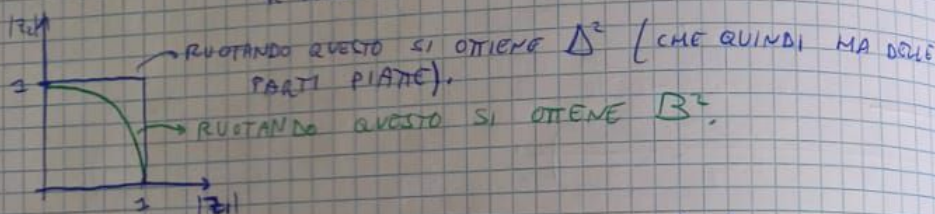 |z₂|
RUOTANDO QUESTO SI OTTIENE Δ² (CHE QUINDI HA DELLE
PARTI PIATTE).
1
RUOTANDO QUESTO SI OTTIENE B².
1 |z₁|